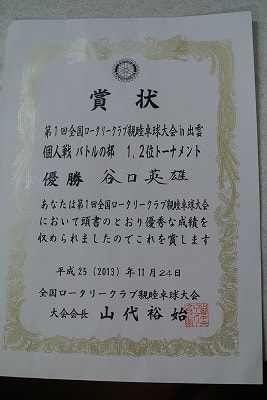 賞状
第1回全国ロータリークラブ親睦卓球大会in出雲
個人戦 バトルの部 1,2位トーナメント
優勝 谷口英雄
あなたは第1回全国ロータリークラブ親睦卓球大会
において頭書のとおり優秀な成績を
収められましたのでこれを賞します
平成25(2013)年11月24日
全国ロータリークラブ親睦卓球大会
大会会長 山代裕始